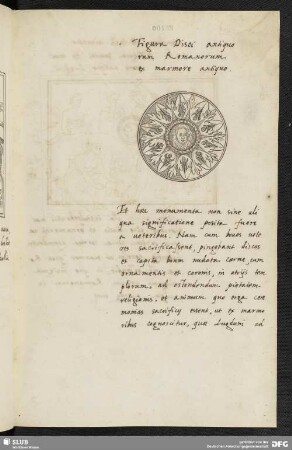 Figura Disci antiquo
rum Romanorum
ex marmore antiquo.
Et haec monumenta non sine ali
qua significatione posita fuere
a veteribus. Nam cum boves vete
res sacrificassent, pingebant discos
et capita boum nudata carne, cum
ornamentis et coronis, in atrijs tem
plorum, ad ostendendum pietatem
religionis, et animum quo erga cere
monias sacrificij erant, ut ex marmo
ribus cognoscitur, quae Lugduni ad
SLUB
DFG